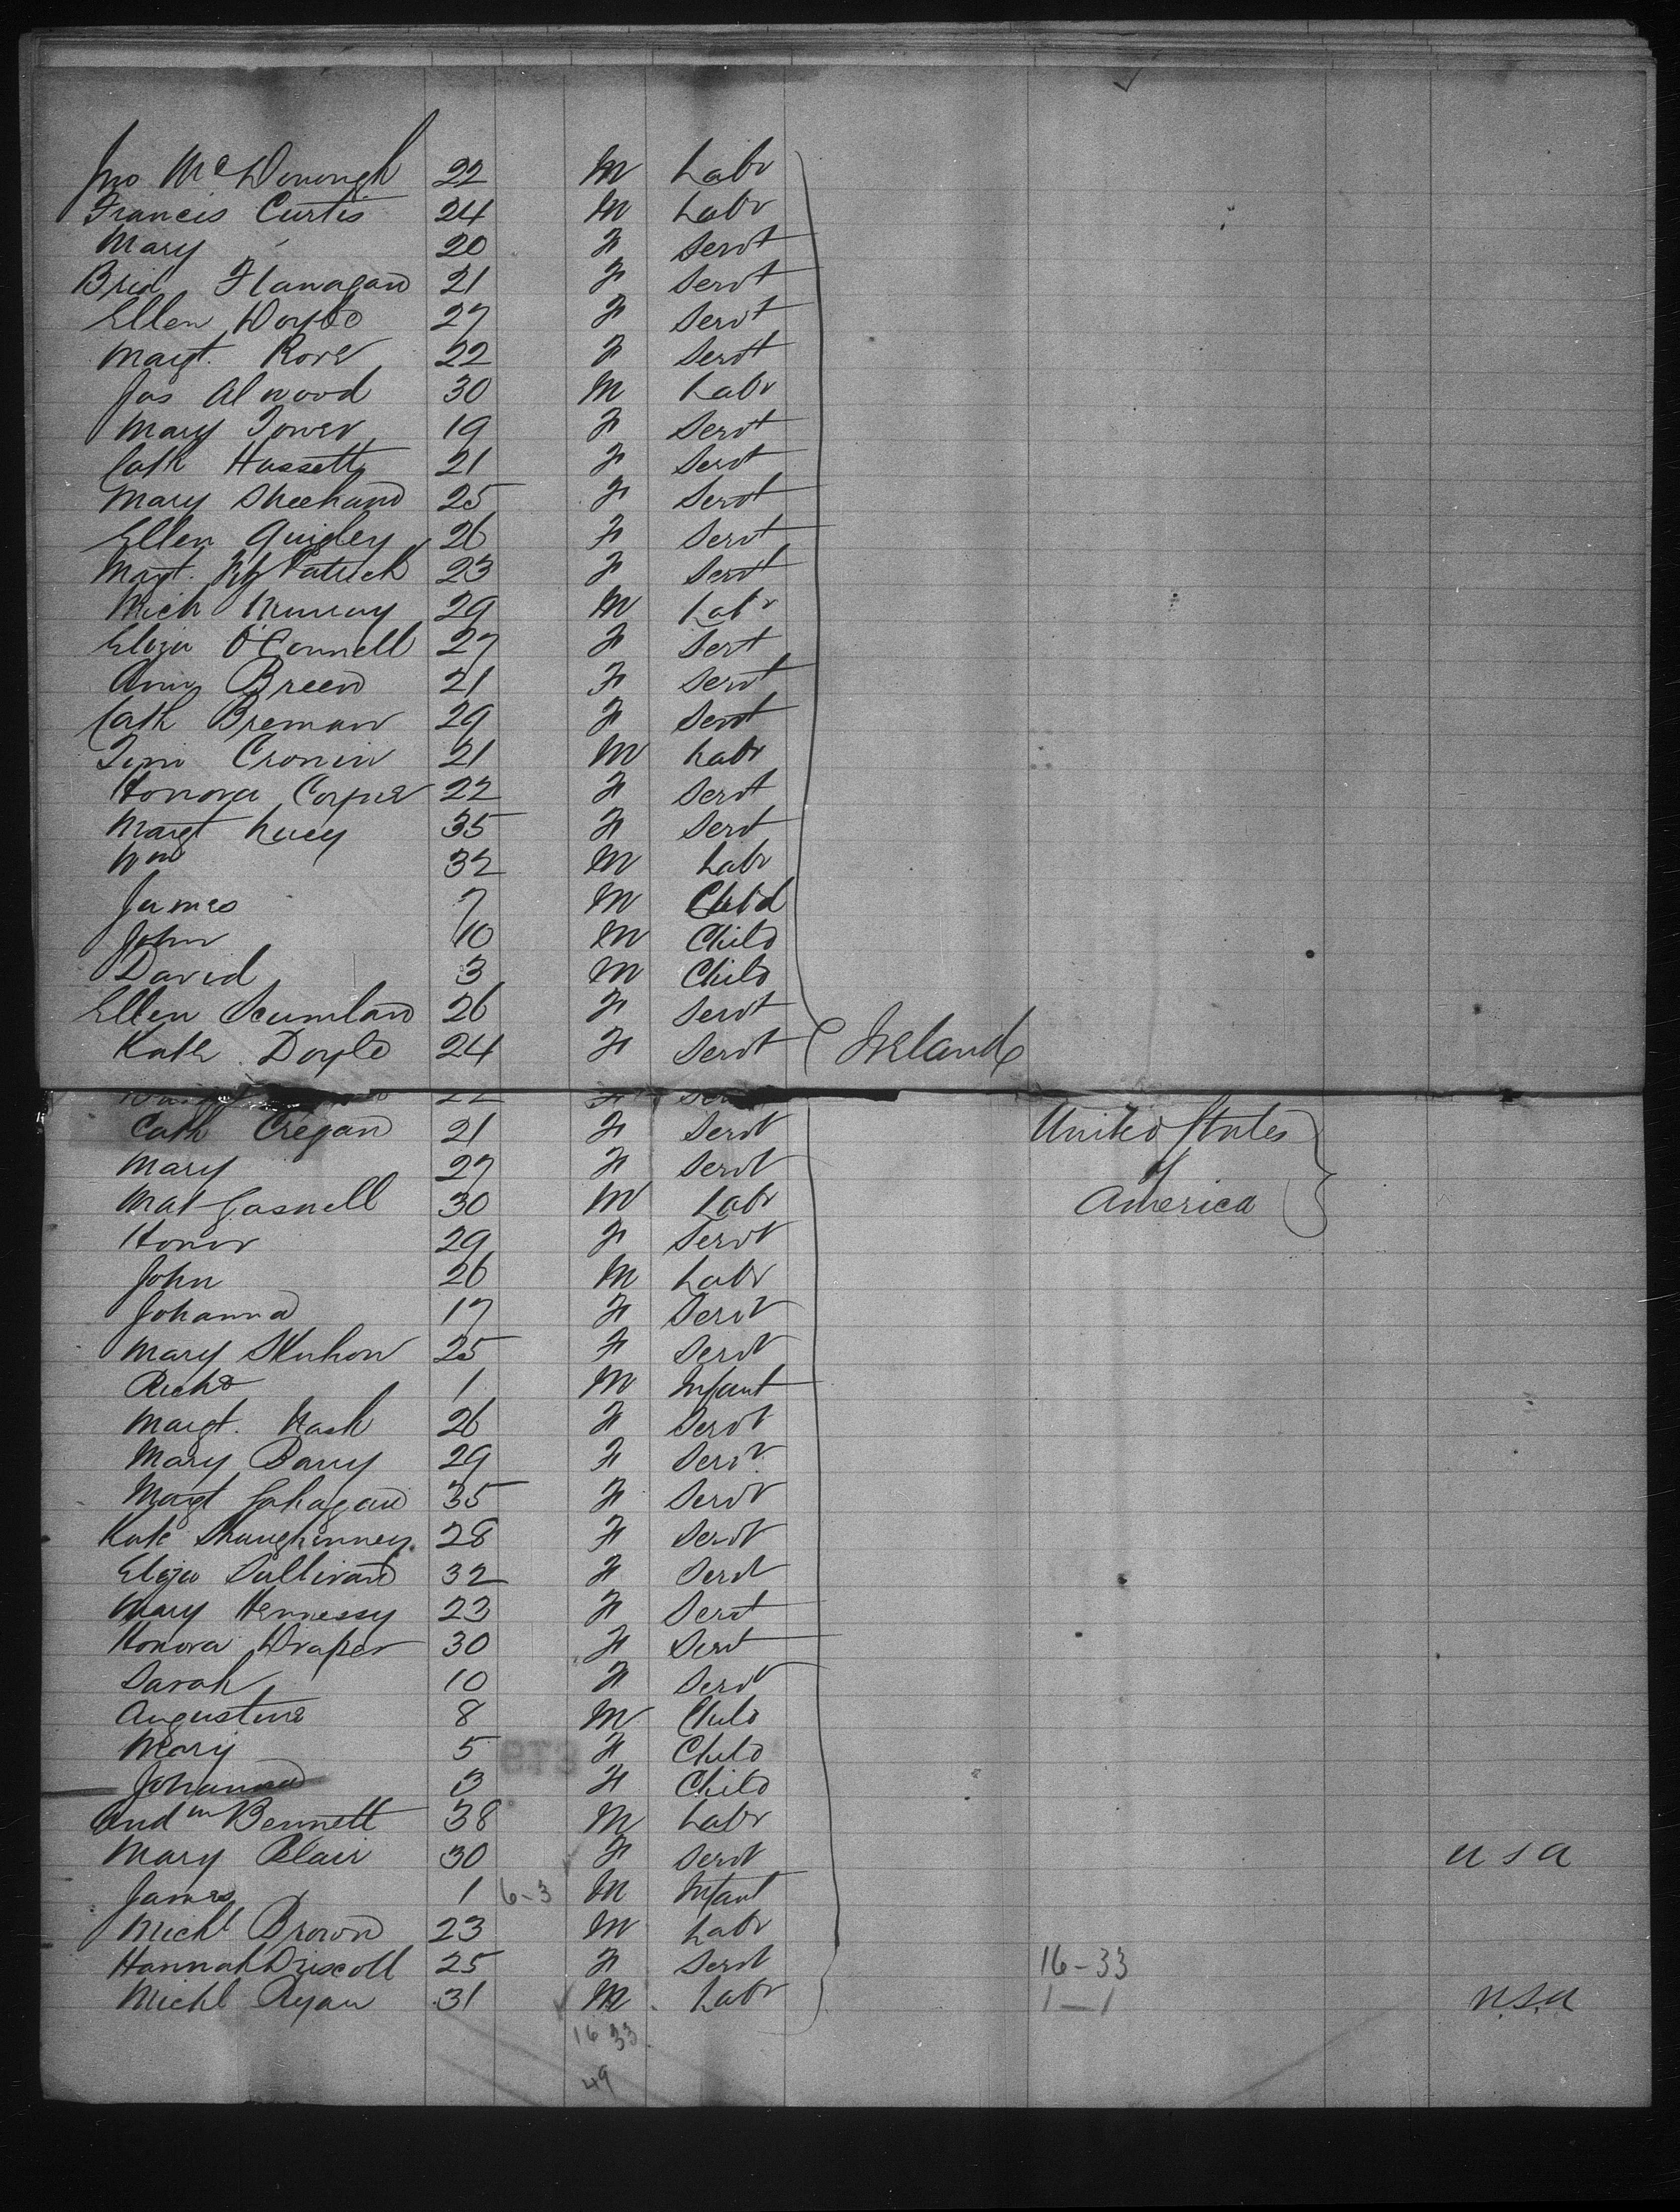 Jno McDonough 22 M Labr
Francis Curtis 24 M Labr
Mary 20 F Servt
Brid Flanagan 21 F Servt
Ellen Doyle 27 F Servt
Margt. 22 F Servt
Jas Alwood 30 M Labr
Mary Tower 19 F Servt
Cath Hassett 21 F Servt
Mary Sheehan 25 F Servt
Ellen Quigley 26 F Servt
Margt. FitzPatrick 23 F Servt
Mich Murray 29 M Labr
Eliza O'Connell 27 F Servt
Ann Breen 21 F Servt
Cath Brennan 29 F Servt
Tim Cronin 21 M Labr
Honora Coyne 22 F Servt
Margt Lucey 35 F Servt
Wm 32 M Labr
James 7 M Child
John 10 M Child
David 3 M Child
Ellen 26 F Servt
Kate Doyle 24 F Servt Ireland
22 F Servt
Cath Cregan 21 F Servt United States
Mary 27 F Servt of
Mat Gasnell 30 M Labr America
Honor 29 F Servt
John 26 M Labr
Johanna 17 F Servt
Mary 25 F Servt
Richd 1 M Infant
Margt. Nash 26 F Servt
Mary Barry 29 F Servt
Margt Gahagan 35 F Servt
Kate Shaughinney 28 F Servt
Eliza Sullivan 32 F Servt
Mary Hennessy 23 F Servt
Honora Draper 30 F Servt
Sarah 10 F Servt
Augustine 8 M Child
Mary 5 F Child
Johanna 3 F Child
Andw Bennett 38 M Labr
Mary Blair 30 F Servt U S A
James 1 6-3 M Infant
Michl Brown 23 M Labr
Hannah Driscoll 25 F Servt 16-33
Michl Ryan 31 M Labr 1-1 U.S.A
16 33
49